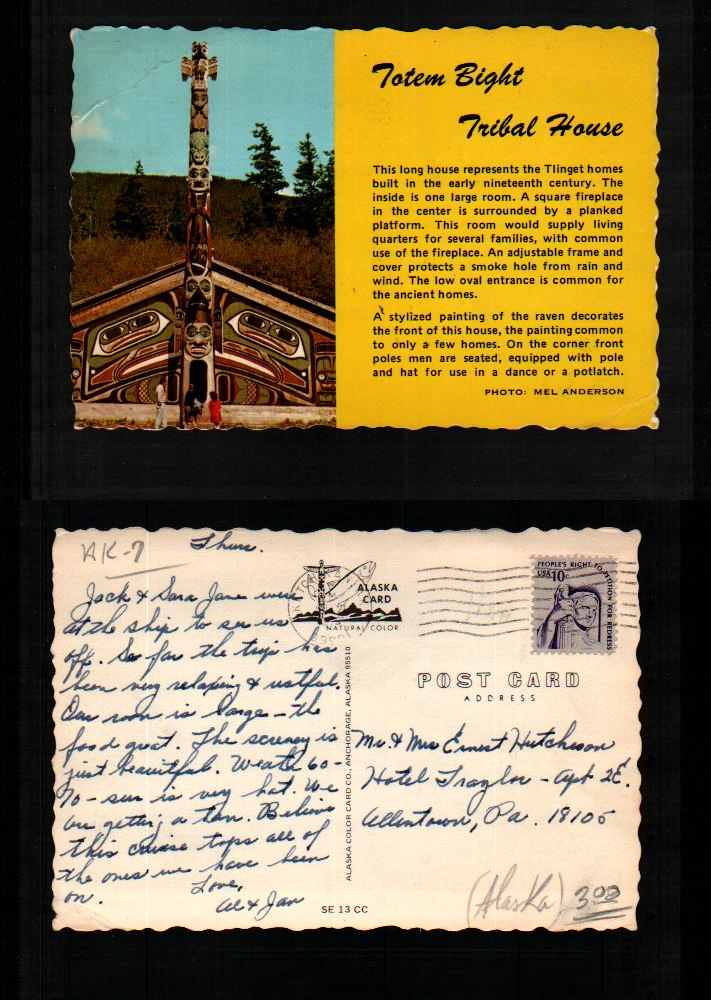 Totem Bight
Tribal House
This long house represents the Tlinget homes
built in the early nineteenth century. The
inside is one large room. A square fireplace
in the center is surrounded by a planked
platform. This room would supply living
quarters for several families, with common
use of the fireplace. An adjustable frame and
cover protects a smoke hole from rain and
wind. The low oval entrance is common for
the ancient homes.
A stylized painting of the raven decorates
the front of this house, the painting common
to only a few homes. On the corner front
poles men are seated, equipped with pole
and hat for use in a dance or a potlatch.
PHOTO: MEL ANDERSON
AK-7
Thurs.
Jack & Sara Jane were
at the ship to see us
off. So far the trip has
been very relaxing & restful.
Our room is large - the
food great. The scenery is
just beautiful. Weath 60-
70 - sun is very hot. We
are getting a tan. Believe
this cruise tops all of
the ones we have been
on.
Love,
Al & Jan
ALASKA
CARD
NATURAL COLOR
ALASKA COLOR CARD CO., ANCHORAGE, ALASKA 99510
SE 13 CC
PEOPLE'S RIGHT TO PETITION FOR REDRESS
USA 10c
POST CARD
ADDRESS
Mr. & Mrs Ernest Hutcheson
Hotel Traylor - Apt 2E.
Allentown, Pa. 18105
(Alaska) 3.00